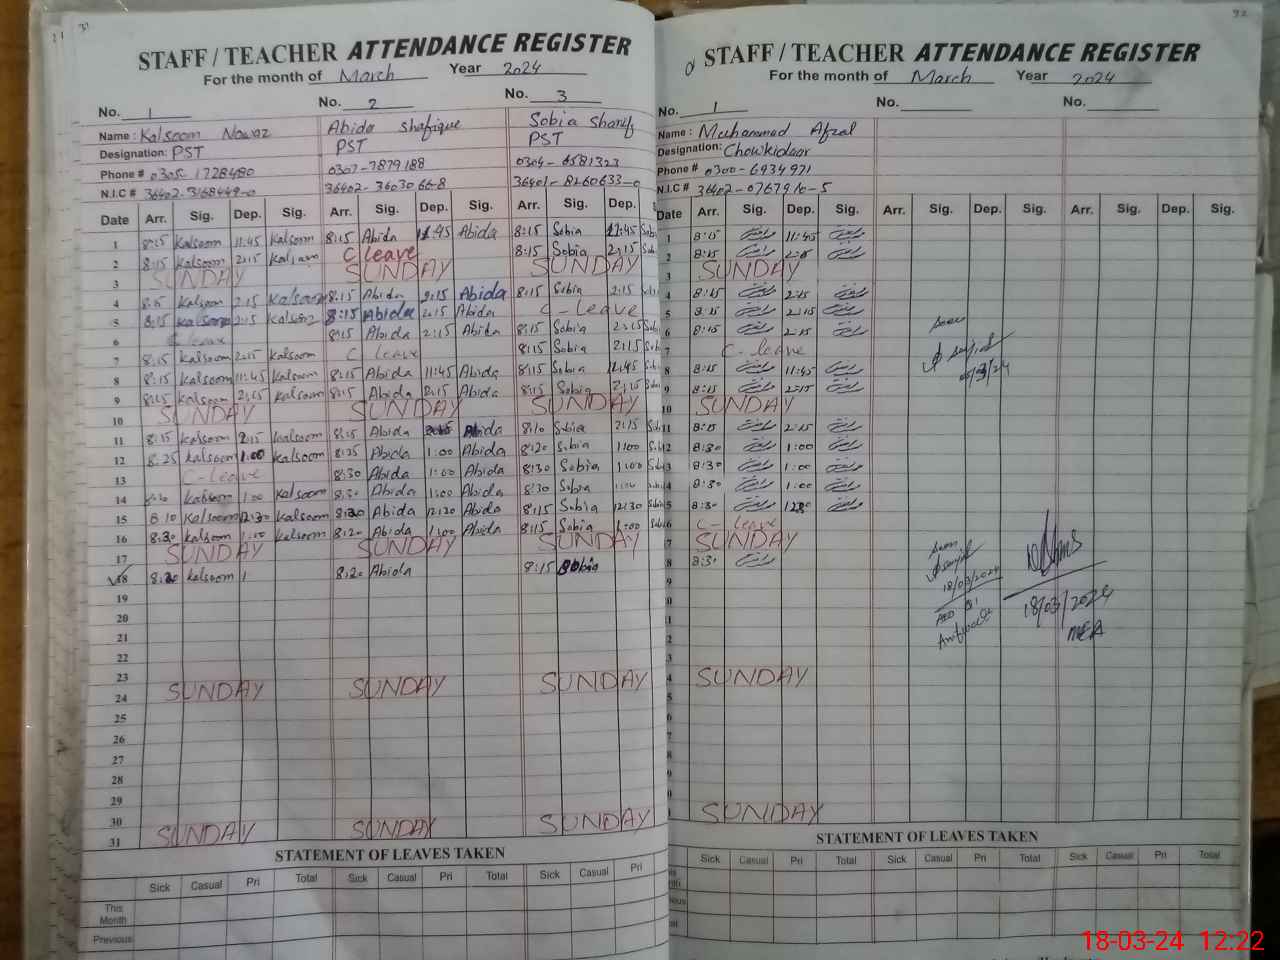 31
STAFF / TEACHER ATTENDANCE REGISTER
For the month of March Year 2024
No. 1 No. 2 No. 3
Name : Kalsoom Nawaz Abida Shafique Sobia Sharif
Designation: PST PST PST
Phone # 0305-1728480 0307-7879188 0304-6581323
N.I.C # 36402-3168449-0 36402-3603066-8 36401-8260633-0
Date Arr. Sig. Dep. Sig. Arr. Sig. Dep. Sig. Arr. Sig. Dep.
1 8:15 Kalsoom 11:45 Kalsoom 8:15 Abida 11:45 Abida 8:15 Sobia 11:45 Sob
2 8:15 Kalsoom 2:15 Kalsoom C leave 8:15 Sobia 2:15 Sob
3 SUNDAY SUNDAY SUNDAY
4 8:15 Kalsoom 2:15 Kalsoom 8:15 Abida 2:15 Abida 8:15 Sobia 2:15 Sob
5 8:15 Kalsoom 2:15 Kalsoom 8:15 Abida 2:15 Abida C-leave
6 C leave 8:15 Abida 2:15 Abida 8:15 Sobia 2:15 Sob
7 8:15 Kalsoom 2:15 Kalsoom C leave 8:15 Sobia 2:15 Sob
8 8:15 Kalsoom 11:45 Kalsoom 8:15 Abida 11:45 Abida 8:15 Sobia 11:45 Sob
9 8:15 Kalsoom 2:15 Kalsoom 8:15 Abida 2:15 Abida 8:15 Sobia 2:15 Sob
10 SUNDAY SUNDAY SUNDAY
11 8:15 Kalsoom 2:15 Kalsoom 8:15 Abida Abida 8:10 Sobia 2:15 Sob
12 8:25 Kalsoom 1:00 Kalsoom 8:25 Abida 1:00 Abida 8:20 Sobia 1:00 Sob
13 C-leave 8:30 Abida 1:00 Abida 8:30 Sobia 1:00 Sob
14 8:30 Kalsoom 1:00 Kalsoom 8:30 Abida 1:00 Abida 8:30 Sobia 1:00 Sob
15 8:10 Kalsoom 12:30 Kalsoom 8:20 Abida 12:30 Abida 8:15 Sobia 12:30 Sob
16 8:30 Kalsoom 1:00 Kalsoom 8:20 Abida 1:00 Abida 8:15 Sobia 1:00 Sob
17 SUNDAY SUNDAY SUNDAY
18 8:20 Kalsoom 1 8:20 Abida 8:15 Sobia
19
20
21
22
23
24 SUNDAY SUNDAY SUNDAY
25
26
27
28
29
30
31 SUNDAY SUNDAY SUNDAY
STATEMENT OF LEAVES TAKEN
Sick Casual Pri Total Sick Casual Pri Total Sick Casual Pri
This Month
Previous
32
STAFF / TEACHER ATTENDANCE REGISTER
For the month of March Year 2024
No. 1 No. No.
Name : Muhammad Afzal
Designation: Chowkidaar
Phone # 0300-6934971
N.I.C # 36402-0767910-5
Date Arr. Sig. Dep. Sig. Arr. Sig. Dep. Sig. Arr. Sig. Dep. Sig.
1 8:15 11:45
2 8:15 2:15
3 SUNDAY
4 8:15 2:15
5 8:15 2:15
6 8:15 2:15
7 C-leave
8 8:15 11:45
9 8:15 2:15
10 SUNDAY
11 8:15 2:15
12 8:30 1:00
13 8:30 1:00
14 8:30 1:00
15 8:30 12:30
16 C-leave
17 SUNDAY
18 8:30
SUNDAY
SUNDAY
Seen
Sajid
Seen
Sajid
18/03/2024
18/03/2024
MEA
STATEMENT OF LEAVES TAKEN
Sick Casual Pri Total Sick Casual Pri Total Sick Casual Pri Total
18-03-24 12:22